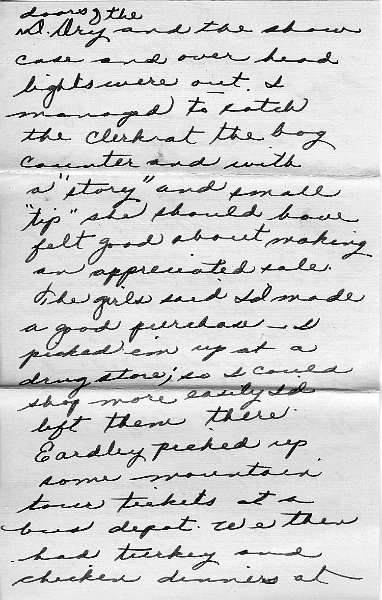 doors of the
D. Dry and the show
case and over head
lights were out. I
managed to catch
the clerk at the bag
counter and with
a "story" and small
"tip" she should have
felt good about making
an appreciated sale.
The girls said I'd made
a good purchase - I
picked em up at a
drug store; so I could
shop more easily I'd
left them there.
Eardley picked up
some mountain
tour tickets at a
bus depot. We then
had turkey and
chicken dinners at